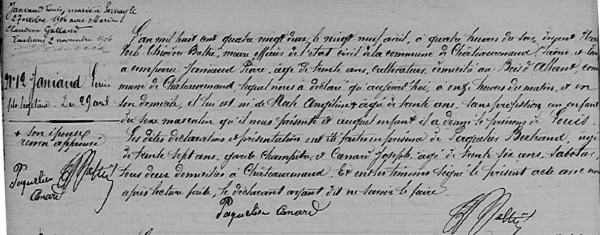 Janiaud Louis, marié à
2 octobre 1906 avec
Claudine Galland
2 novembre 1906
N° 12 Janiaud Louis
fils légitime Du 29 avril
+ son épouse
renvoi approuvé
Paquelier
Canard
L'an mil huit cent quatre vingt deux, le vingt neuf avril, à quatre heures du soir, devant Nous
maire officier de l'état civil de la commune de Châteaurenaud Saône et Loire
a comparu Janiaud Pierre, âgé de trente ans, cultivateur, domicilié au Bois d'Allant, com-
mune de Châteaurenaud, lequel nous a déclaré qu'aujourd'hui, à onze heures du matin, et en
son domicile, il lui est né de + âgée de trente ans, sans profession, un enfant
du sexe masculin qu'il nous présente et auquel enfant il a donné le prénom de Louis
Les dites déclarations et présentation ont été faites en présence de Paquelier Bertrand, âgé
de trente sept ans, garde champêtre, et Canard Joseph, âgé de trente six ans, sabotier
tous deux domiciliés à Châteaurenaud. Et ont les témoins signé le présent acte avec nous
après lecture faite, le déclarant ayant dit ne savoir le faire.
Paquelier Canard